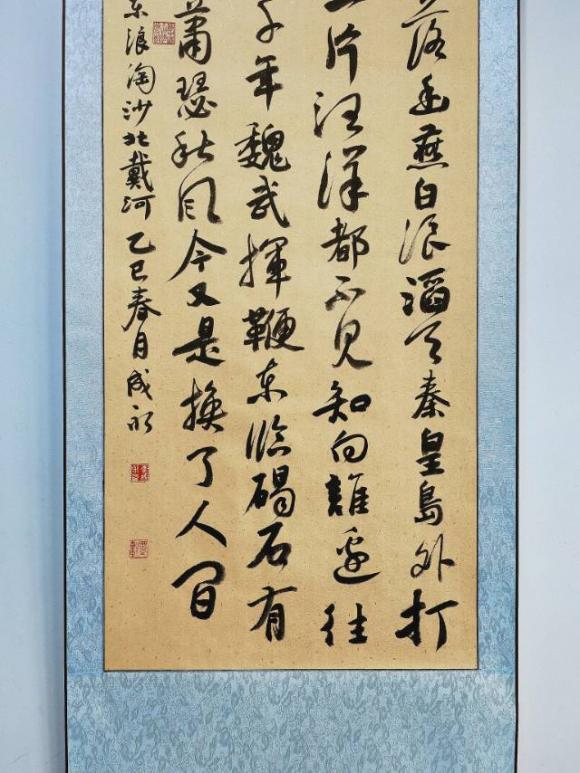 落幽燕白浪滔天秦皇島外打
一片汪洋都不見知向誰邊往
千年魏武揮鞭東臨碣石有
蕭瑟秋风今又是換了人间
东浪淘沙北戴河 乙巳春月成